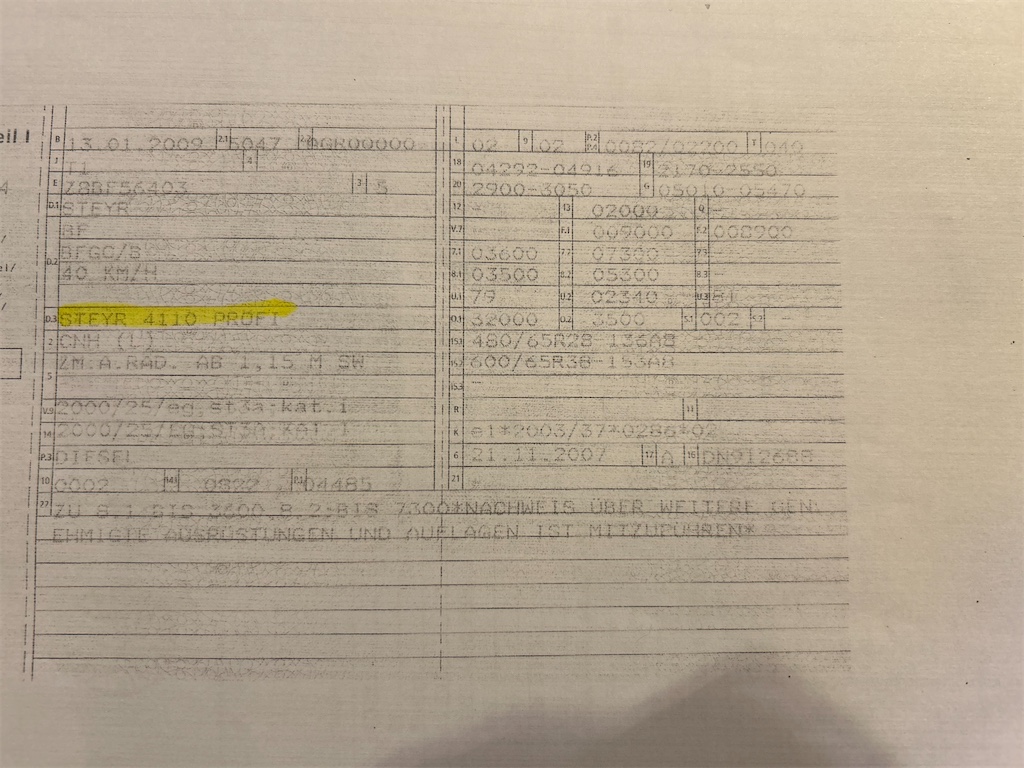 eil I
B 13.01.2009 2.1 5047 2.2
J T1 4
E Z8BF56403 3 5
D.1 STEYR
BF
D.2 BFGO/B
40 KM/H
D.3 STEYR 4110 PROFI
2 CNH (L)
5 ZM.A.RÄD. AB 1,15 M SW
V.9 2000/25/eg.st3a:kat.i
14 2000/25/EG;ST3A;KAT.I
P.3 DIESEL
10 0002 14.1 0822 P.1 04485
L 02 9 02 P.2 P.4 0082/02200 T 040
18 04292-04916 19 2170-2550
20 2900-3050 G 05010-05470
12 - 13 02000 Q -
V.7 - F.1 009000 F.2 008900
7.1 03600 7.2 07300 7.3 -
8.1 03500 8.2 05300 8.3 -
U.1 79 U.2 02340 U.3 81
O.1 32000 O.2 3500 S.1 002 S.2 -
15.1 480/65R28 136A8
15.2 600/65R38 153A8
15.3 -
R 11
K e1*2003/37*0286*02
6 21.11.2007 17 A 16
21 -
22 ZU 8.1:BIS 3600,8.2:BIS 7300*NACHWEIS ÜBER WEITERE GEN
EHMIGTE AUSRÜSTUNGEN UND AUFLAGEN IST MITZUFÜHREN*